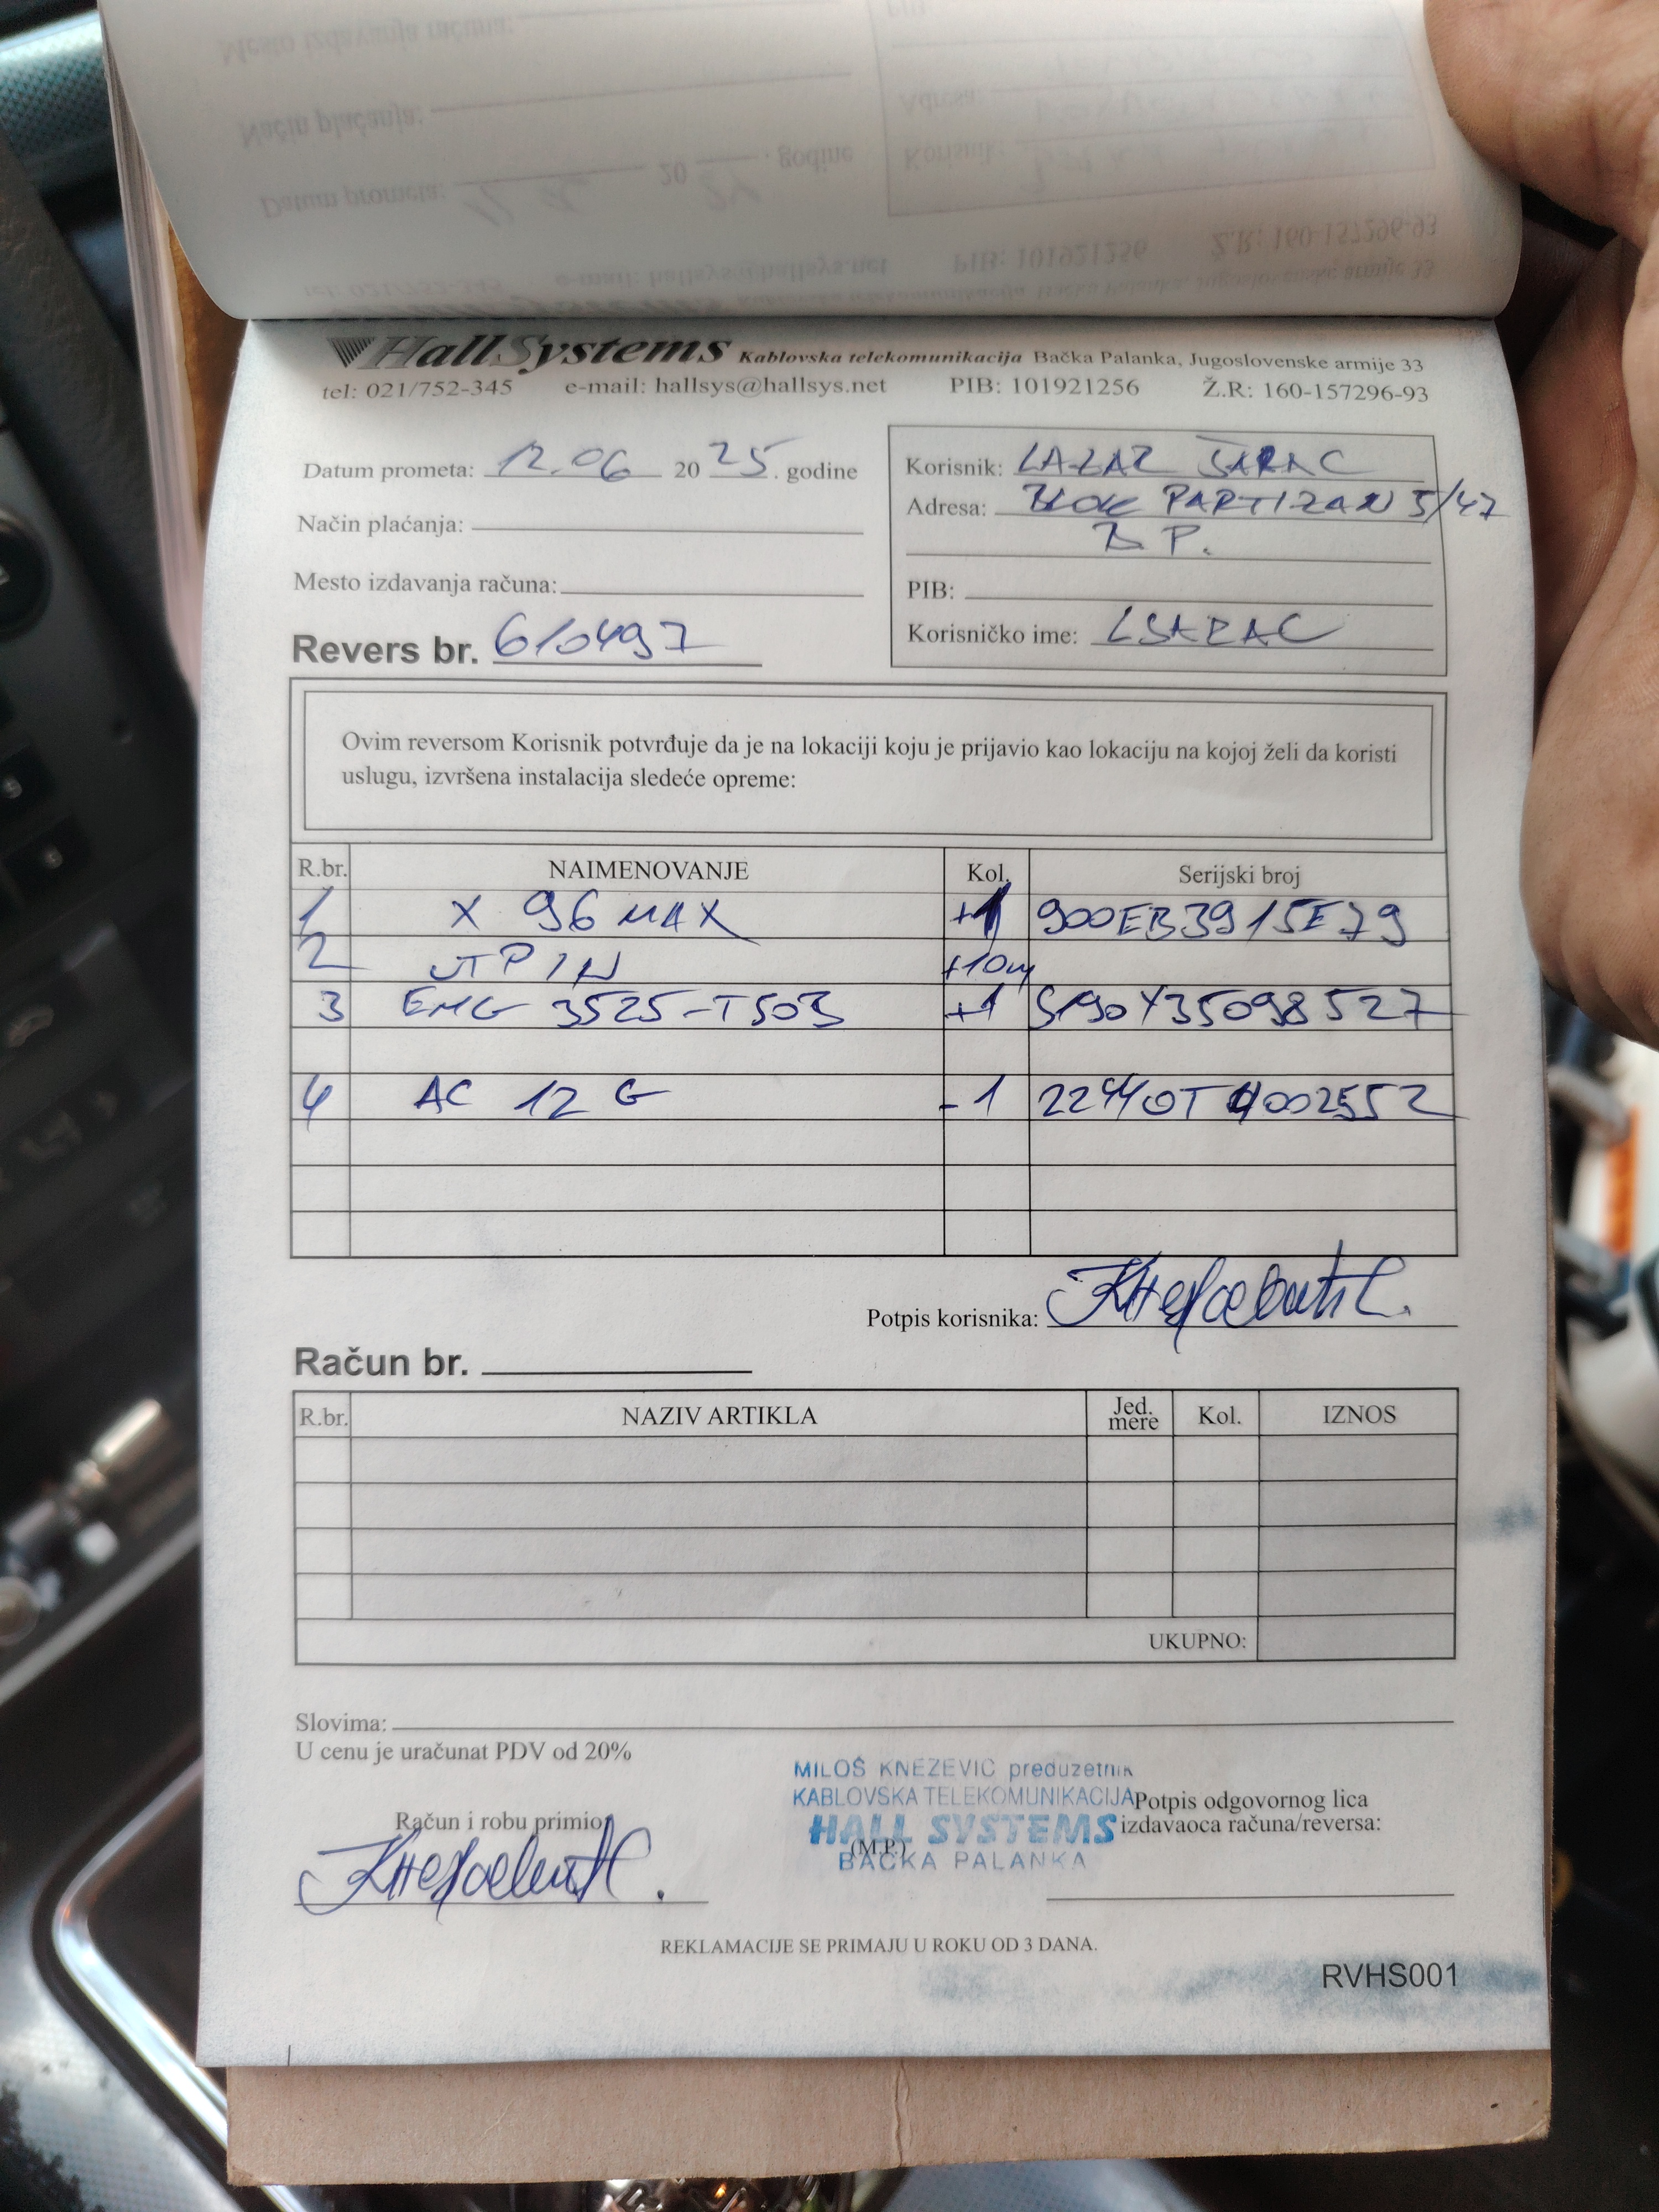 HallSystems Kablovska telekomunikacija Bačka Palanka, Jugoslovenske armije 33
tel: 021/752-345 e-mail: hallsys@hallsys.net PIB: 101921256 Ž.R: 160-157296-93
Datum prometa: 12.06 2025. godine
Način plaćanja:
Mesto izdavanja računa:
Revers br. 610497
Korisnik: LAZAR ŠARAC
Adresa: BLOK PARTIZAN 5/47
B P.
PIB:
Korisničko ime: LSARAC
Ovim reversom Korisnik potvrđuje da je na lokaciji koju je prijavio kao lokaciju na kojoj želi da koristi
uslugu, izvršena instalacija sledeće opreme:
R.br. NAIMENOVANJE Kol. Serijski broj
1 X 96 MAX +1 900EB3915E79
2 UTP IN +10m
3 EMG 3525-T50B +1 S190Y35098527
4 AC 12 G -1 22440T4002552
Potpis korisnika: Кнежевић С.
Račun br.
R.br. NAZIV ARTIKLA Jed. mere Kol. IZNOS
UKUPNO:
Slovima:
U cenu je uračunat PDV od 20%
Račun i robu primio
MILOŠ KNEŽEVIĆ preduzetnik
KABLOVSKA TELEKOMUNIKACIJA
HALL SYSTEMS
(M.P.)
BAČKA PALANKA
Potpis odgovornog lica
izdavaoca računa/reversa:
REKLAMACIJE SE PRIMAJU U ROKU OD 3 DANA.
RVHS001